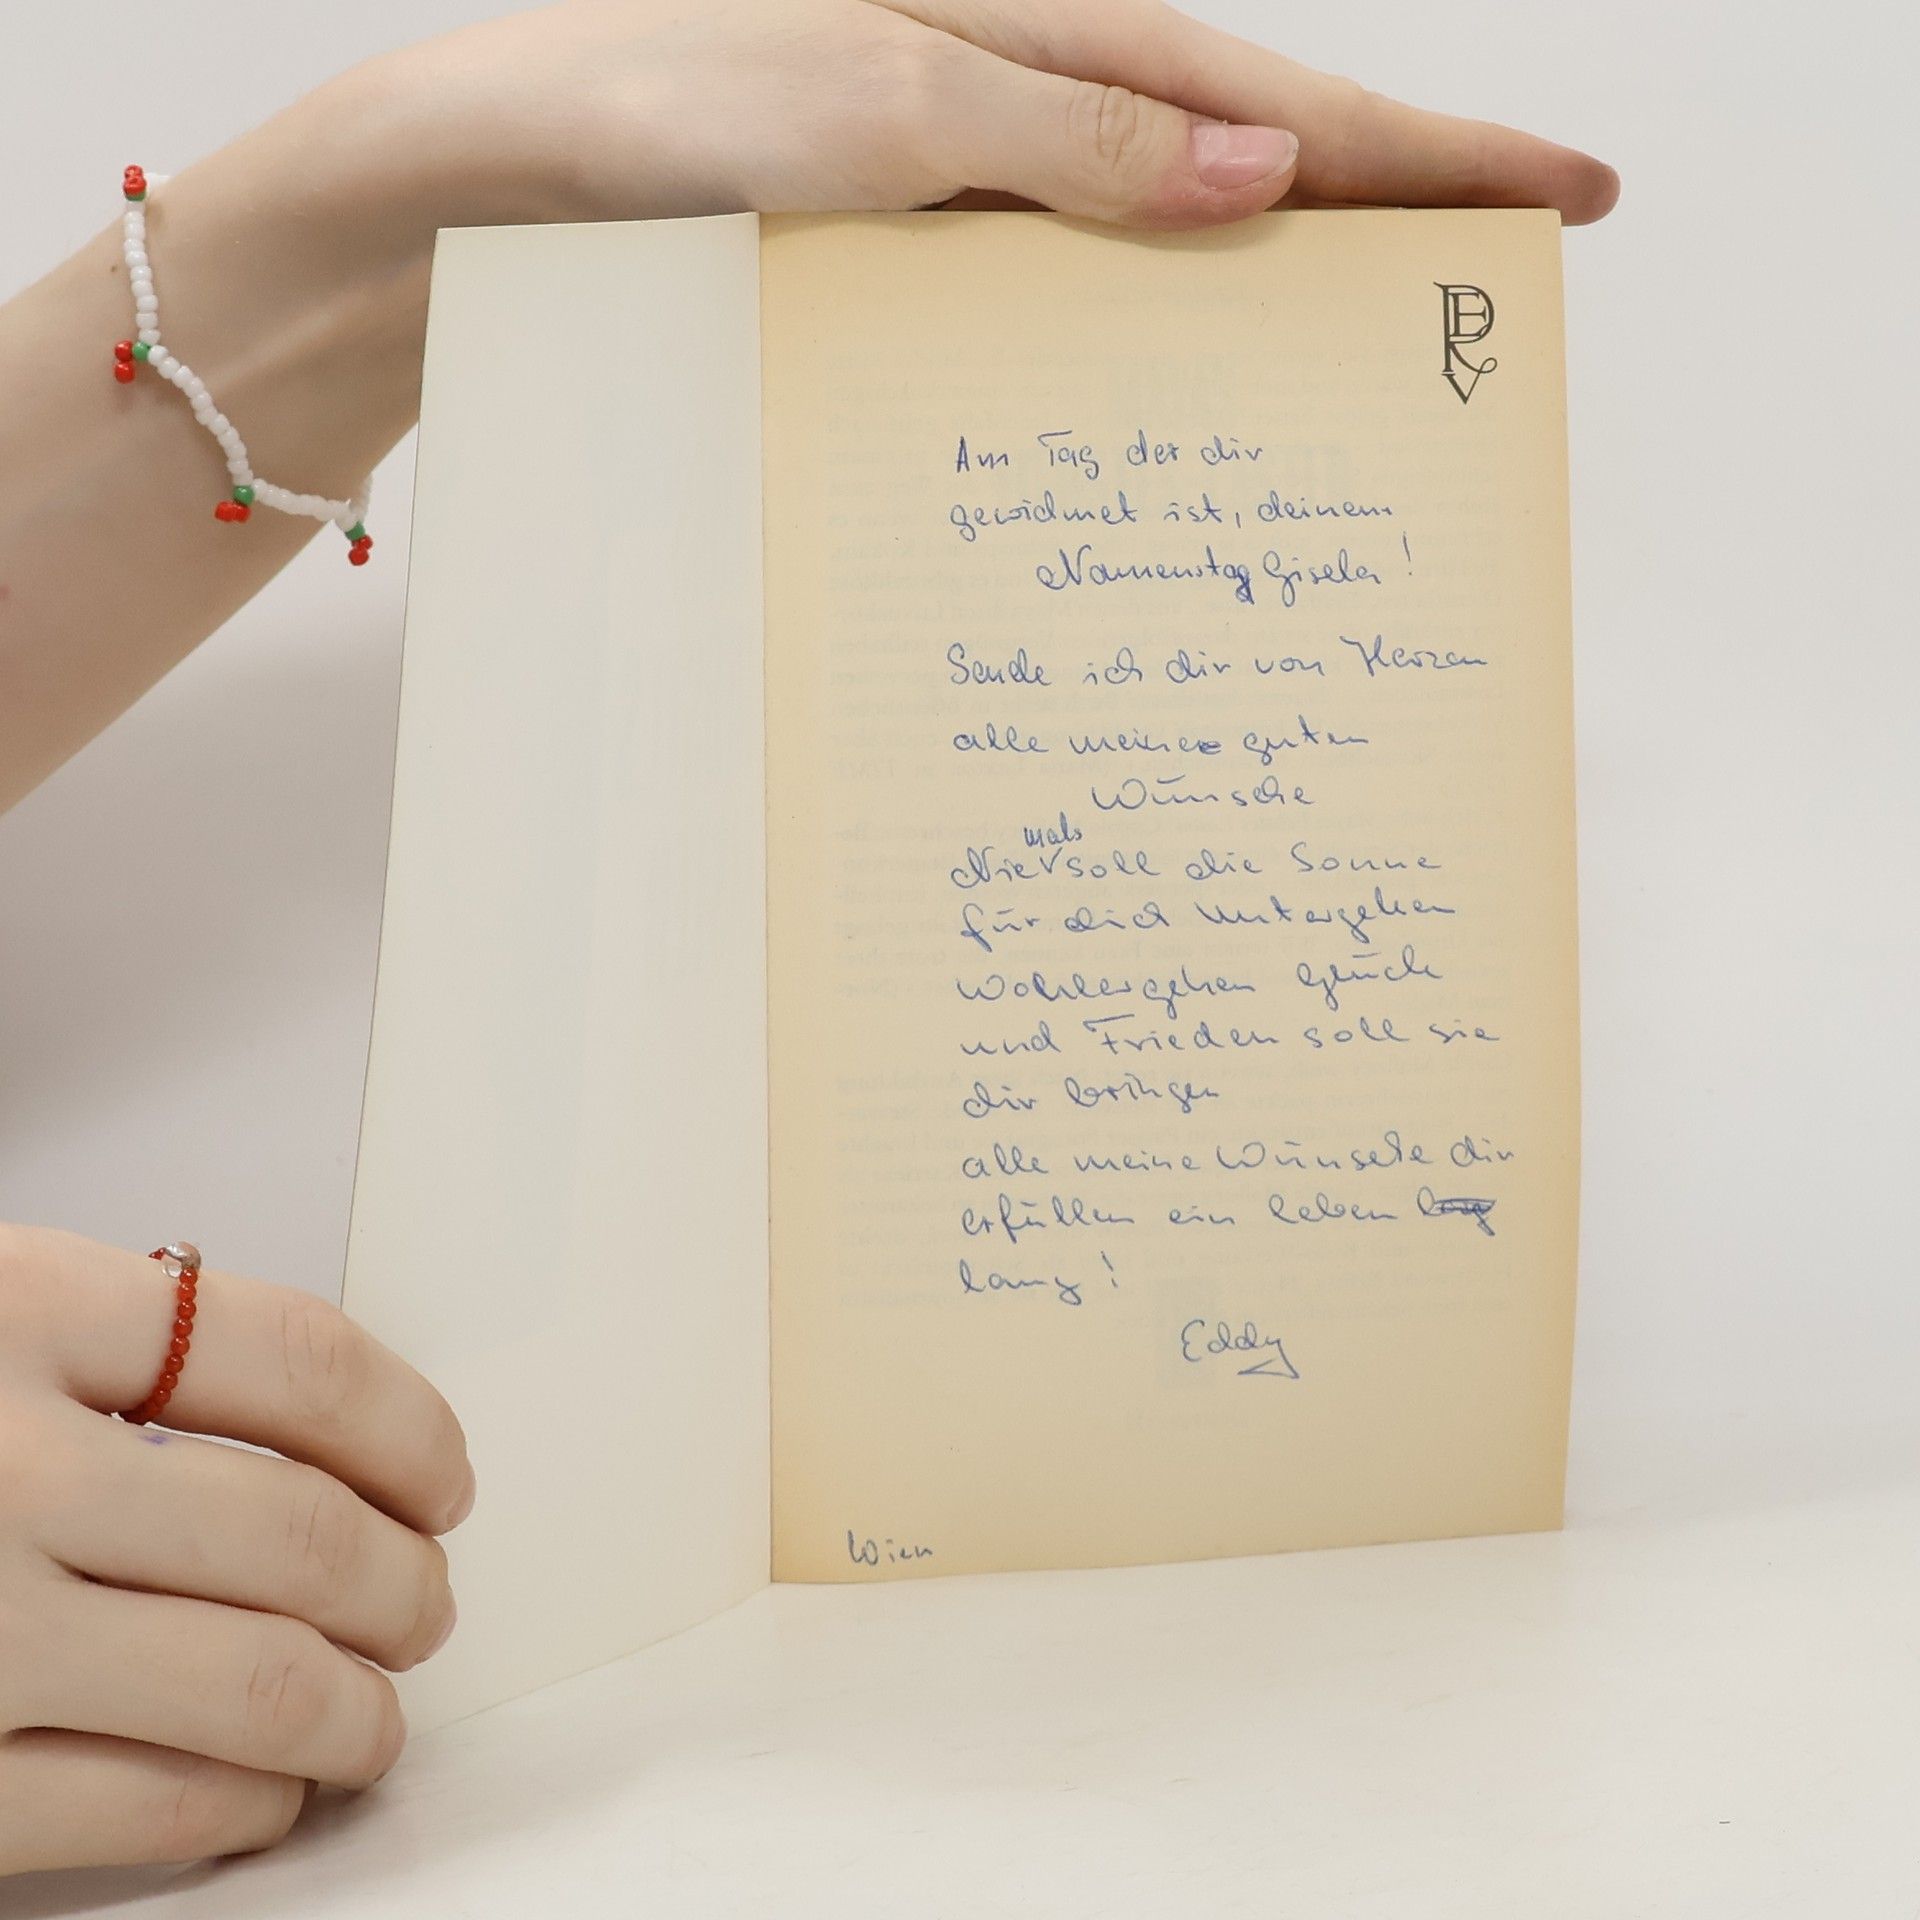 PERV
Am Tag der dir
gewidmet ist, deinem
Namenstag Gisela!
Sende ich dir von Herzen
alle meine guten
Wünsche
mals
Nie soll die Sonne
für dich Untergehen
Wohlergehen Glück
und Frieden soll sie
dir bringen
alle meine Wünsche dir
erfüllen ein leben
lang!
Eddy
Wien